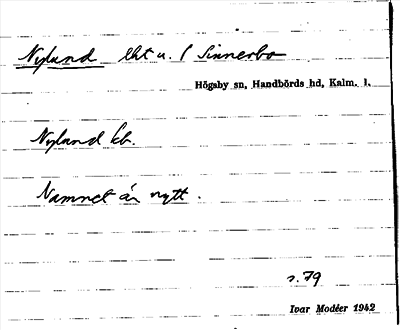 Nyland lht u. / Sinnerbo
Högsby sn, Handbörds hd, Kalm. l.
Nyland kb.
Namnet är nytt.
s. 79
Ivar Modéer 1942